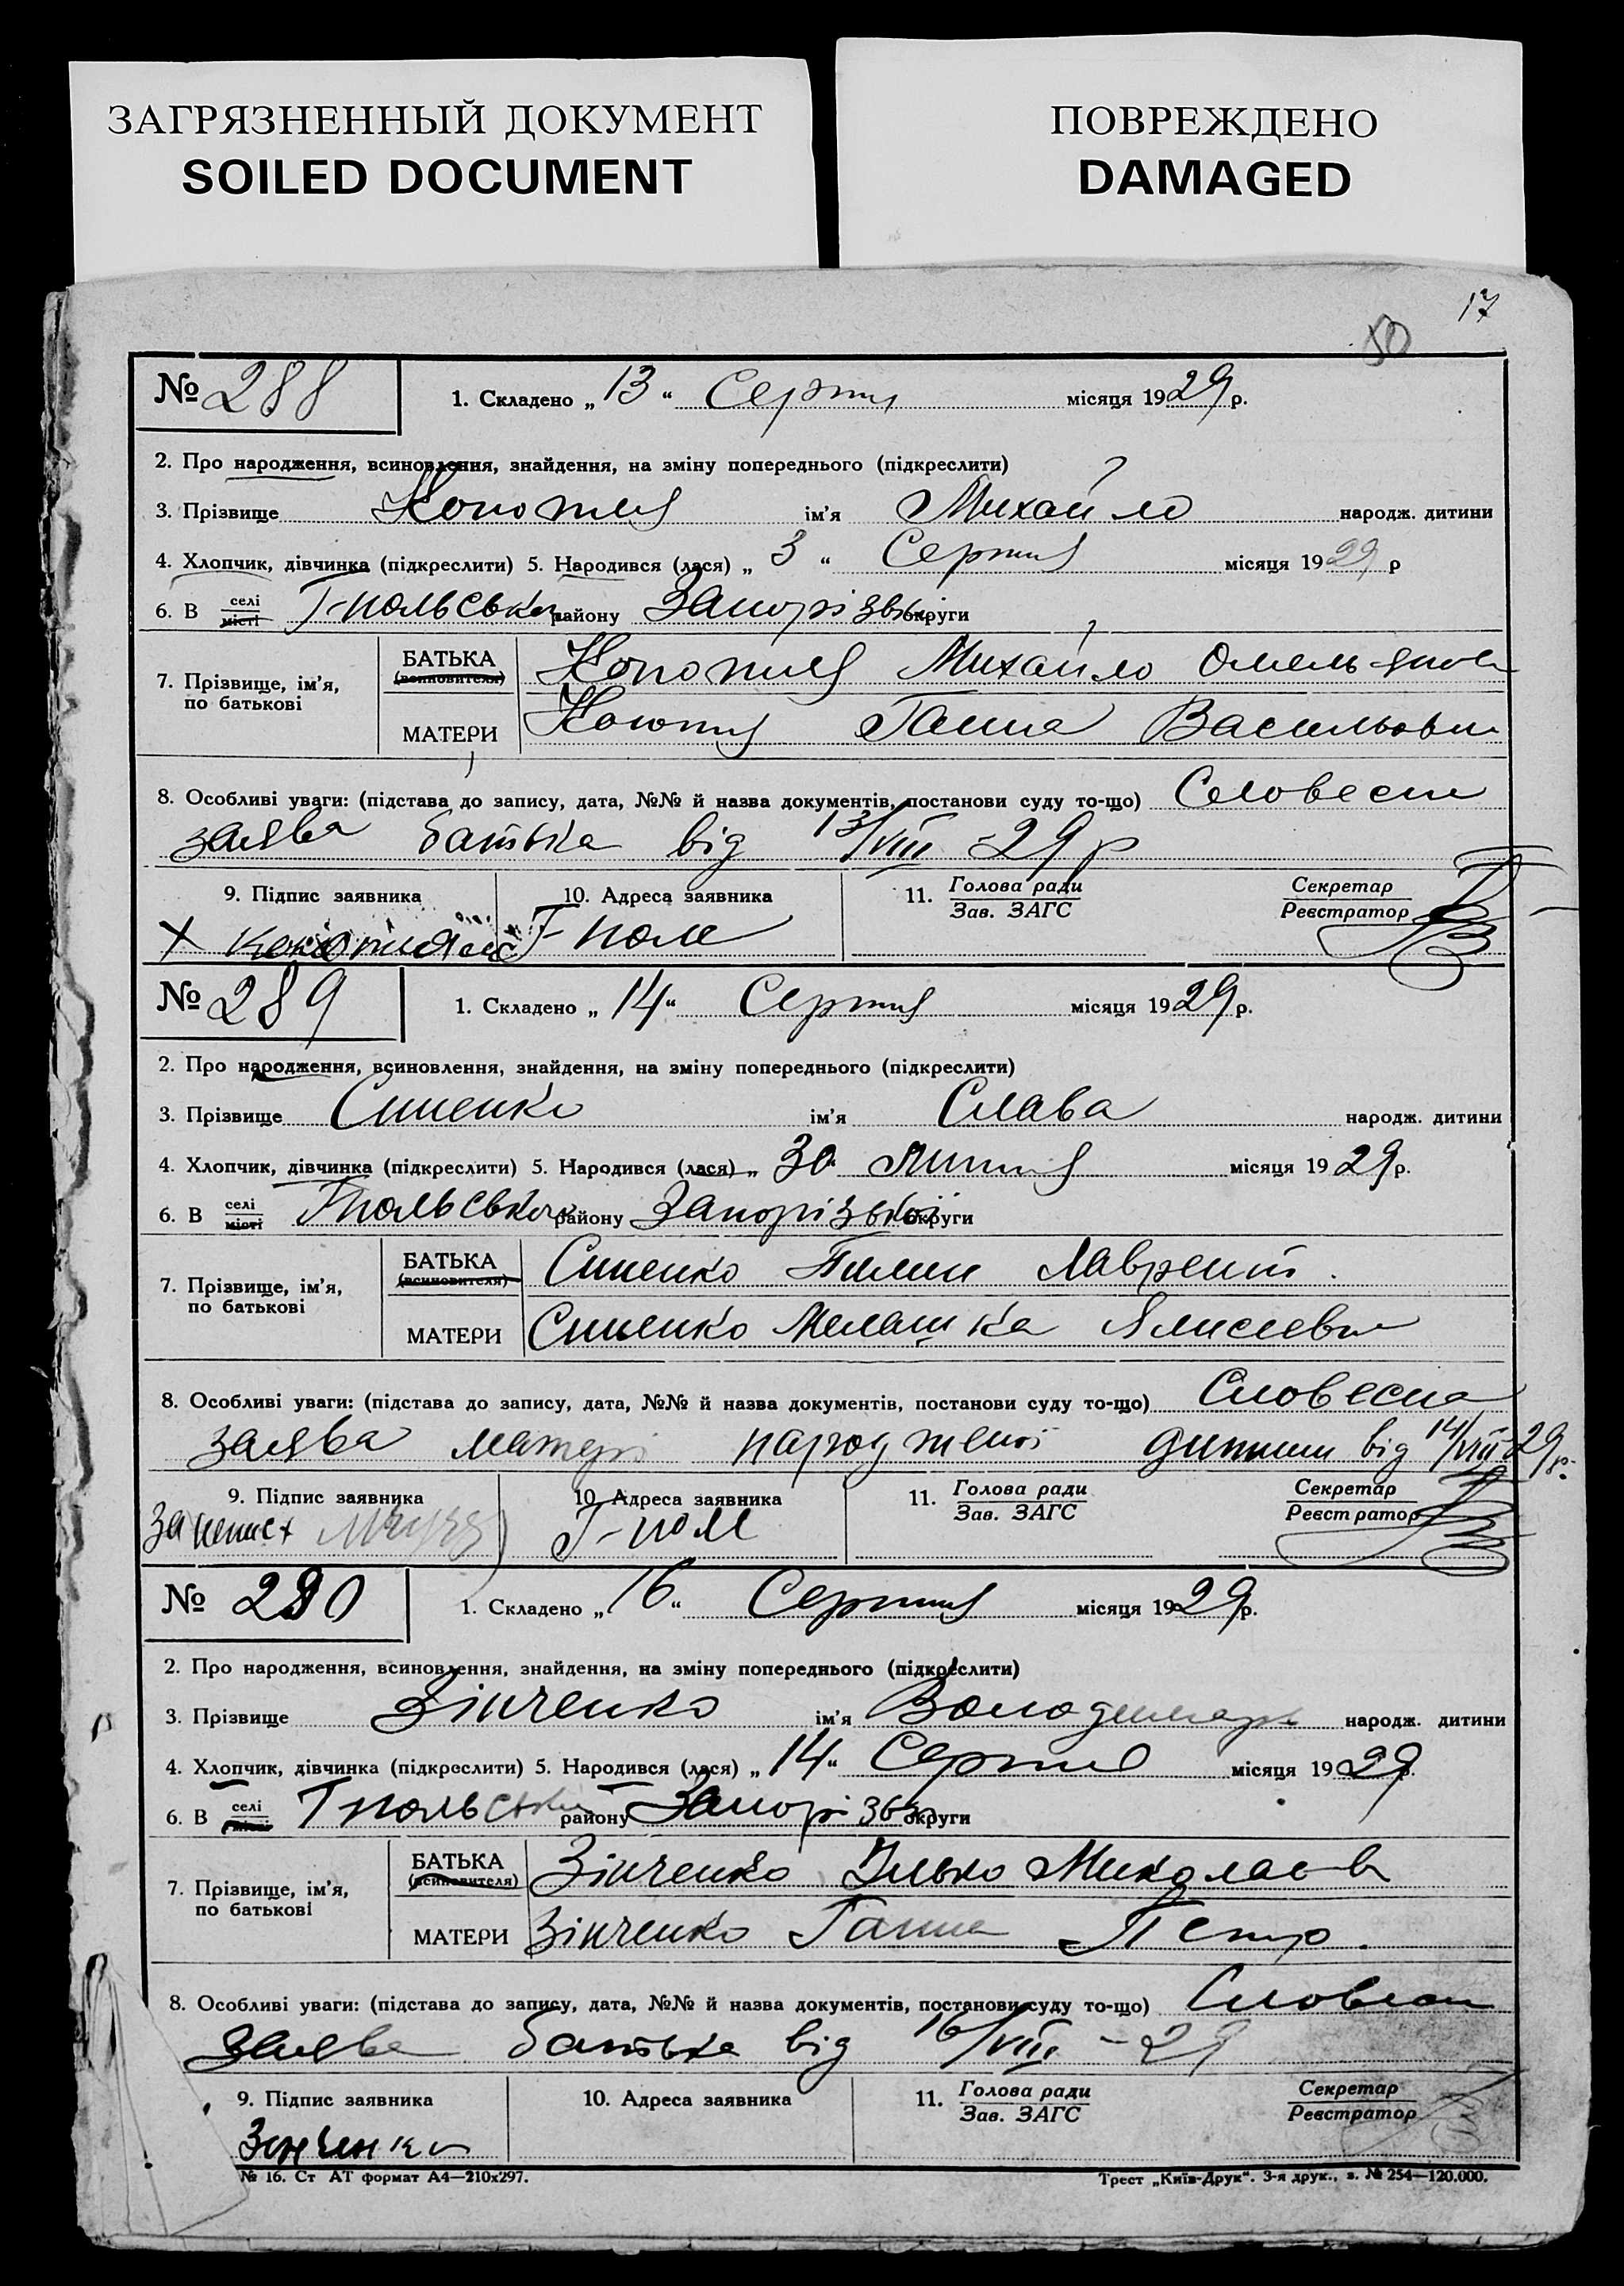 ЗАГРЯЗНЕННЫЙ ДОКУМЕНТ
SOILED DOCUMENT
ПОВРЕЖДЕНО
DAMAGED
17
50
№ 288 1. Складено „ 13 “ Серпня місяця 1929 р.
2. Про народження, всиновлення, знайдення, на зміну попереднього (підкреслити)
3. Прізвище Конопля ім’я Михайло народж. дитини
4. Хлопчик, дівчинка (підкреслити) 5. Народився (лася) „ 3 “ Серпня місяця 1929 р
6. В селі місті Г-польськ району Запорізьк округи
7. Прізвище, ім’я, по батькові
БАТЬКА (всиновителя) Конопля Михайло
МАТЕРИ Ганна Васильовн
8. Особливі уваги: (підстава до запису, дата, №№ й назва документів, постанови суду то-що) Словесн
заява батька від 13/VIII -29 р
9. Підпис заявника 10. Адреса заявника 11. Голова ради Зав. ЗАГС Секретар Реєстратор
Х Г-поле
№ 289 1. Складено „ 14 “ Серпня місяця 1929 р.
2. Про народження, всиновлення, знайдення, на зміну попереднього (підкреслити)
3. Прізвище Синенко ім’я Слава народж. дитини
4. Хлопчик, дівчинка (підкреслити) 5. Народився (лася) „ 30 Липня місяця 1929 р.
6. В селі місті Гпольськ району Запорізької округи
7. Прізвище, ім’я, по батькові
БАТЬКА (всиновителя) Синенко Пилип Лаврент.
МАТЕРИ Синенко Мелашка
8. Особливі уваги: (підстава до запису, дата, №№ й назва документів, постанови суду то-що) Словесна
заява матері народженої дитини від 14/VIII-29 р.
9. Підпис заявника 10. Адреса заявника 11. Голова ради Зав. ЗАГС Секретар Реєстратор
Г-поле
№ 290 1. Складено „ 16 “ Серпня місяця 1929 р.
2. Про народження, всиновлення, знайдення, на зміну попереднього (підкреслити)
3. Прізвище Зінченко ім’я Володимир народж. дитини
4. Хлопчик, дівчинка (підкреслити) 5. Народився (лася) „ 14 “ Серпня місяця 1929 р.
6. В селі місті Гпольськ району Запорізьк округи
7. Прізвище, ім’я, по батькові
БАТЬКА (всиновителя) Зінченко Ілько Миколаєв
МАТЕРИ Зінченко Ганна Петр.
8. Особливі уваги: (підстава до запису, дата, №№ й назва документів, постанови суду то-що) Словесн
заява батька від 16/VIII - 29
9. Підпис заявника 10. Адреса заявника 11. Голова ради Зав. ЗАГС Секретар Реєстратор
№ 16. Ст АТ формат А4—210х297. Трест „Київ-Друк“. 3-я друк., з. № 254—120.000.